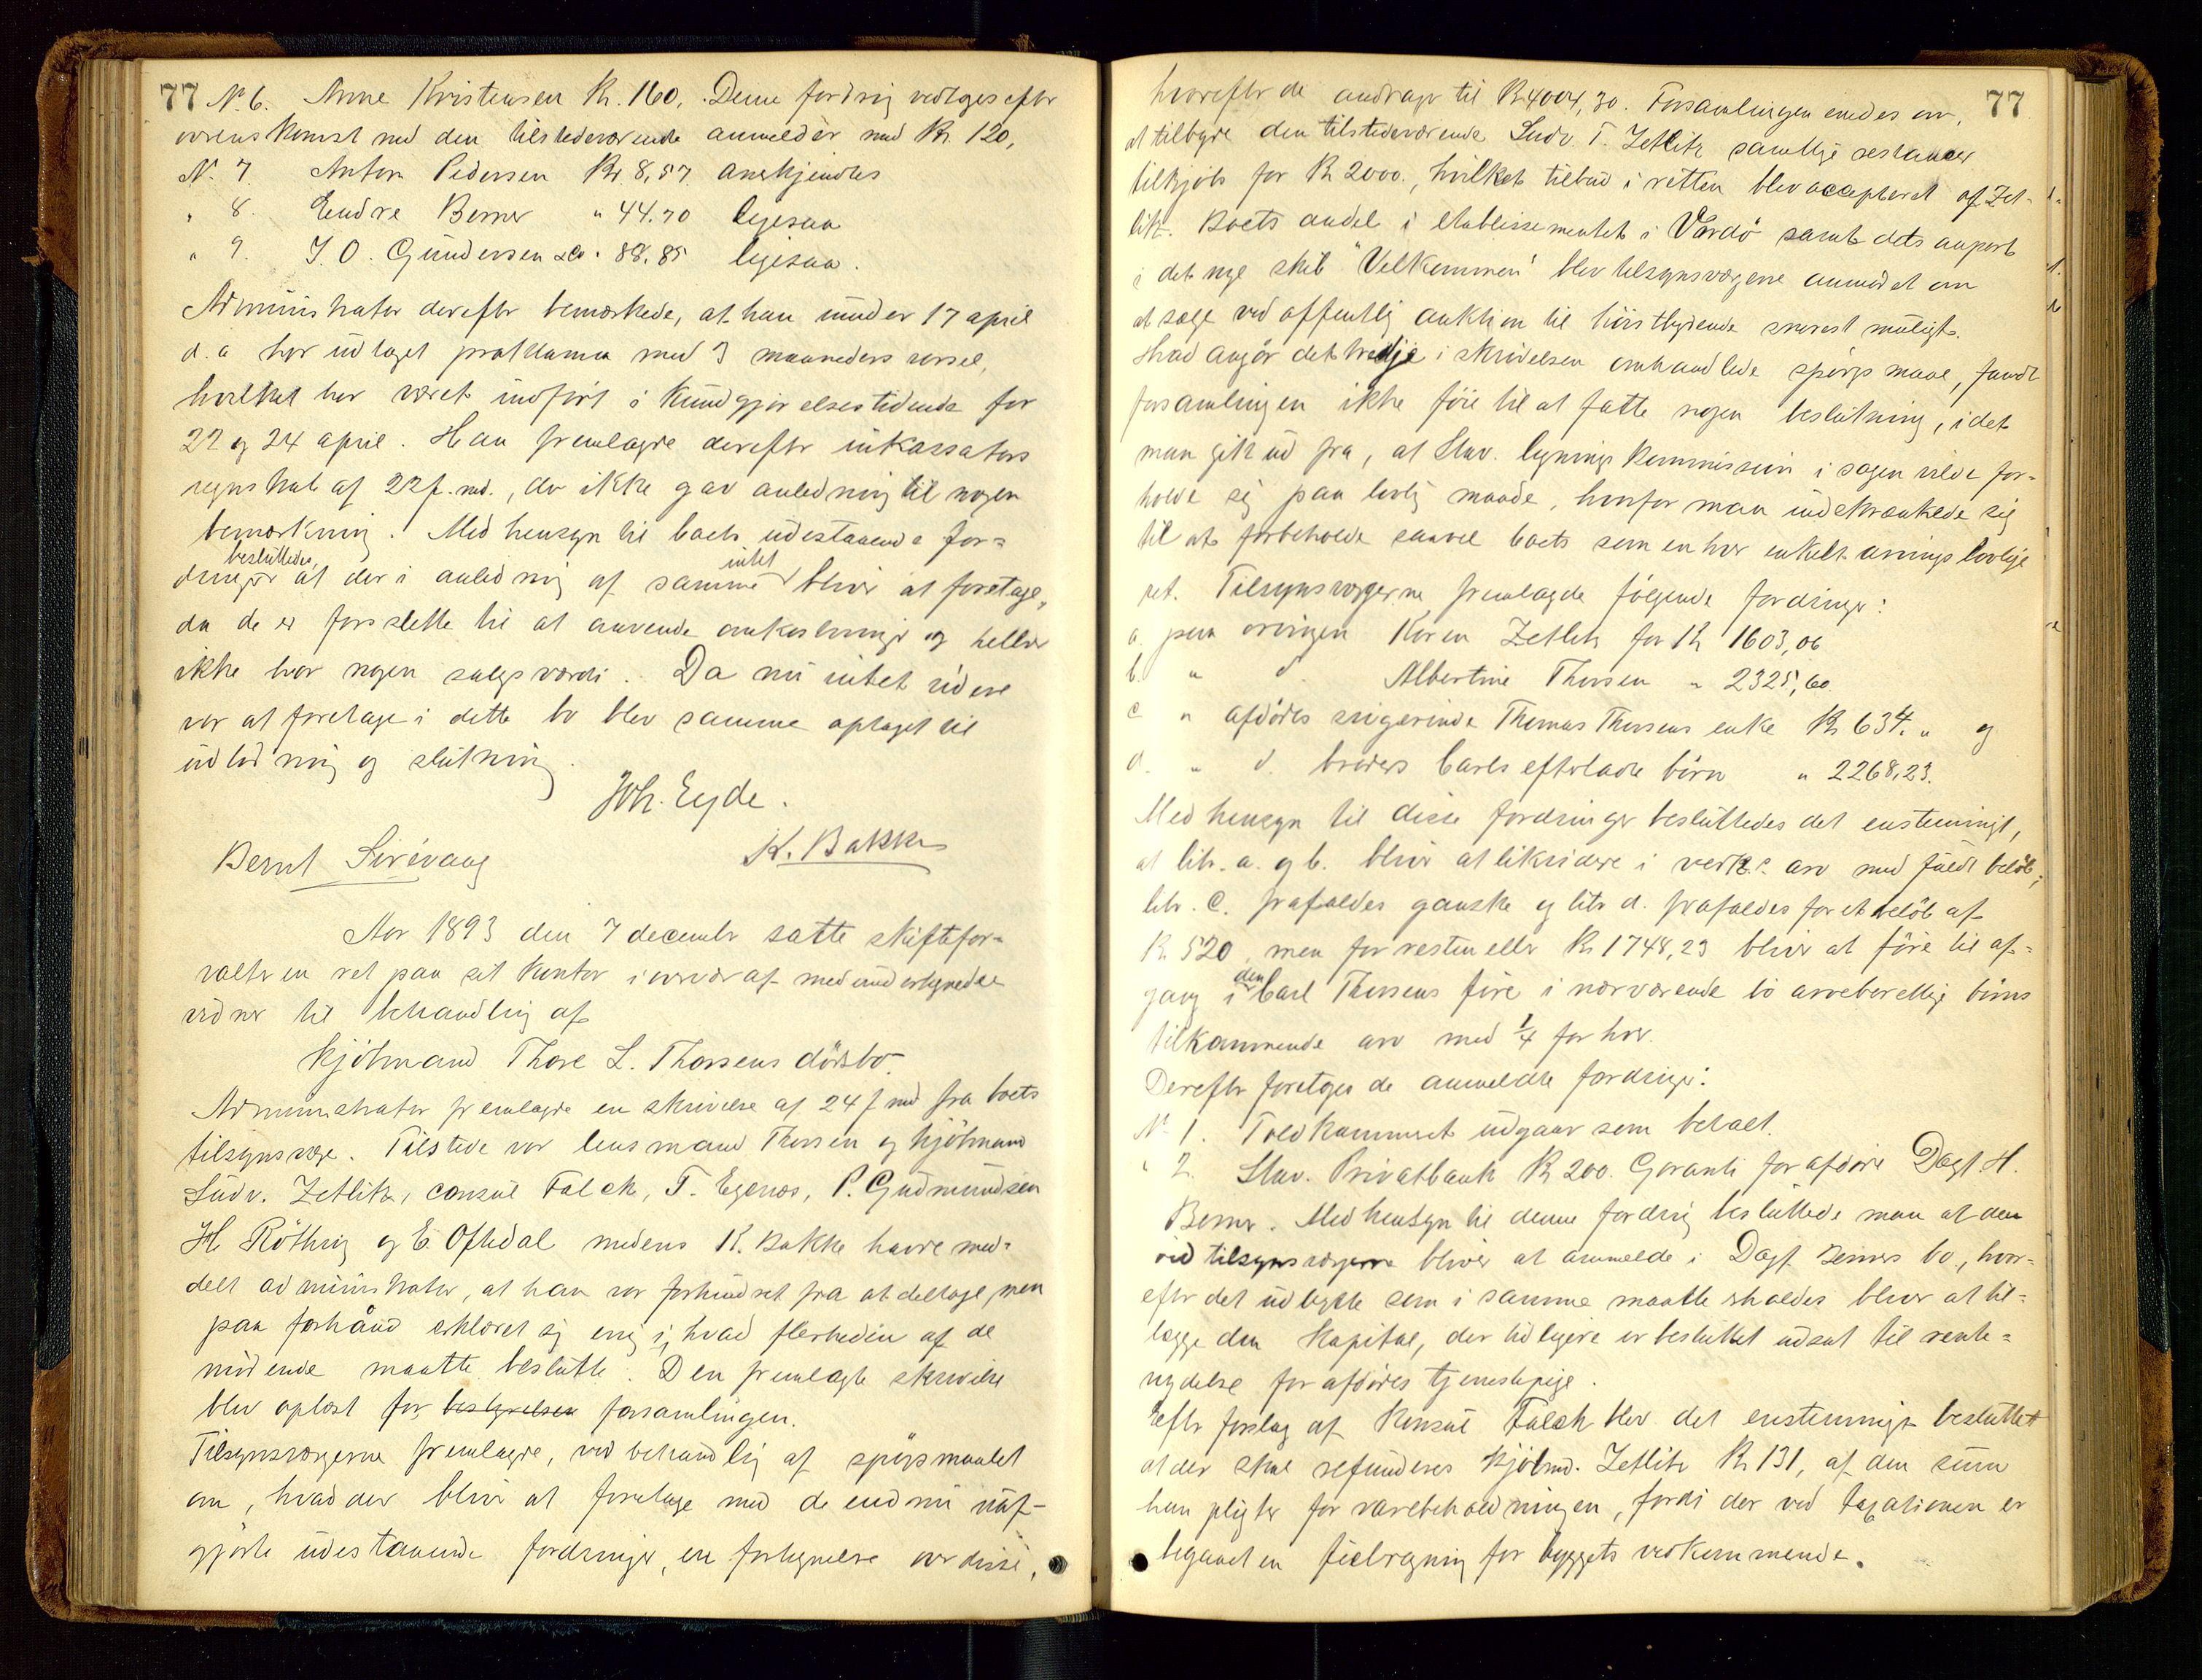 77 N. 6. Anne Kristensen Kr. 160. Denne fordring vedtoges efter
overenskomst med den tilstedeværende anmelder med Kr 120,
N. 7. Anton Pedersen Kr 8,57 anerkjendtes
" 8. Endre Berner " 44.70 ligesaa
" 9. J. O. Gundersen & Co. " 88.85 ligesaa.
Administrator derefter bemærkede, at han under 17 april
d. a har udtaget proklama med 3 maaneders varsel,
hvilket har været indført i Kundgjørelsestidende for
22 og 24 april. Han fremlagde derefter inkassators
regnskab af 22 f. md., der ikke gav anledning til nogen
bemærkning. Med hensyn til boets udestaaende for-
dringer besluttedes, at der i anledning af samme intet bliver at foretage,
da de er for slette til at anvende omkostninger og heller
ikke har nogen salgsværdi. Da nu intet videre
var at foretage i dette bo blev samme optaget til
udlodning og slutning.
Joh. Eyde.
Bernt Sirevaag K. Bakke
Aar 1893 den 7 decembr satte skiftefor-
valteren ret paa sit kontor i overvær af medundertegnede
vidner til behandling af
kjøbmand Thore L. Thorsens dødsbo.
Administrator fremlagde en skrivelse af 24 f md fra boets
tilsynsværge. Tilstede var lensmand Thorsen og kjøbmand
Ludv. Zetlitz, consul Falck, T. Egenæs, P. Gudmundsen
H Röthing og E. Oftedal medens K. Bakke havde med-
delt administrator, at han var forhindret fra at deltage, men
paa forhånd erklæret sig enig i, hvad flerheden af de
mødende maatte beslutte. Den fremlagte skrivelse
blev oplæst for bestyrelsen forsamlingen.
Tilsynsværgerne fremlagde, ved behandling af spørsmaalet
om, hvad der bliver at foretage med de endnu uaf-
gjorte udestaaende fordringer, en fortegnelse over disse,
77
hvorefter de andrager til Kr 4004,30. Forsamlingen enedes om,
at tilbyde den tilstedeværende Ludv. T. Zetlitz samtlige restancer
tilkjøbs for Kr 2000., hvilket tilbud i retten blev accepteret af Zet-
litz. Boets andel i etablissementet i Vardö samt dets anpart
i det nye skib "Velkommen" blev tilsynsværgerne anmodet om
at sælge ved offentlig auktion til høistbydende snarest muligt.
Hvad angår det tredje i skrivelsen omhandlede spørgsmaal, fandt
forsamlingen ikke føie til at fatte nogen beslutning, idet
man gik ud fra, at Stav. ligningskommission i sagen vilde for-
holde sig paa lovlig maade, hvorfor man indskrænkede sig
til at forbeholde saavel boets som enhver enkelt arvings lovlige
ret. Tilsynsværgerne fremlagde følgende fordringer:
a. paa arvingen Karen Zetlitz for Kr 1603,06
b. " " Albertine Thorsen " 2325,60.
c " afdødes svigerinde Thomas Thorsens enke Kr 634. " og
d. " d. broders Carls efterladte børn " 2268,23.
Med hensyn til disse fordringer besluttedes det enstemmigt,
at litr. a. og b. bliver at likvidere i vedk.s arv med fuldt beløb;
litr. C. frafaldes ganske og litr d. frafaldes for et beløb af
Kr 520, men for resten eller Kr 1748,23 bliver at føre til af-
gang i den Carl Thorsens fire i nærværende bo arveberettige børns
tilkommende arv med 1/4 for hver.
Derefter foretoges de anmeldte fordringer:
N 1. Toldkammeret udgaar som betalt.
" 2. Stav. Privatbank Kr 200. Garanti for afdøde Dagf. H.
Berner. Med hensyn til denne fordring besluttede man at den
ved tilsynsværgerne bliver at anmelde i Dagf. Berners bo, hvor-
efter det udbytte som i samme maatte erholdes bliver at til-
lægge den kapital, der tidligere er besluttet udsat til rente-
nydelse for afdødes tjenestepige.
Efter forslag af konsul Falck blev det enstemmigt besluttet
at der skal refunderes kjøbmd. Zetlitz Kr 131, af den sum
han pligter for varebeholdningen, fordi der ved taxationen er
begaaet en feilregning for byggets vedkommende.